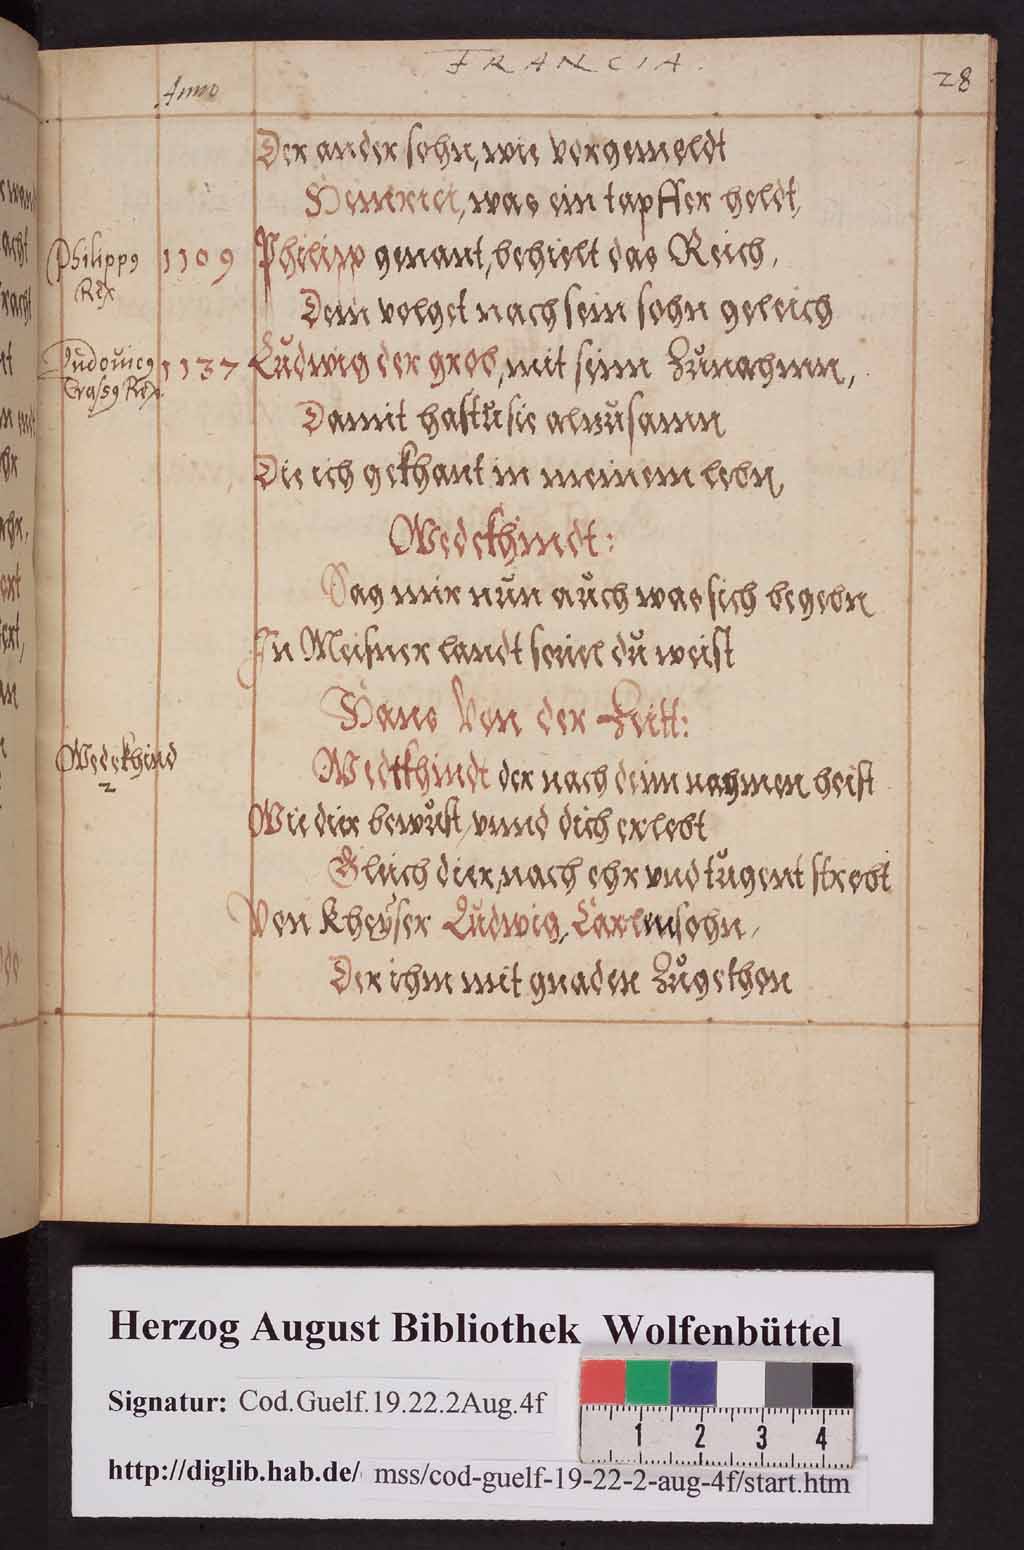 FRANCIA.
Anno
28
Der ander sohn, wie vorgemeldt
Heinrici, was ein tapffer heldt,
Philippꝰ Rex 1109 Philipp genant, behielt das Reich,
Dem volget nach sein sohn geleich
Ludouicꝰ Crassꝰ Rex 1137 Ludwig der grob, mit seim Zůnahmn,
Damit hastu sie alzusamn
Die ich gekhant in meinem lebn,
Wedekhindt:
Sag mir nůn aůch was sich begebn
In Meisner landt souiel dů weist
Hans Von der Zeitt:
Wedekhind 2
Wedtkhindt der nach deim nahmen heist
Wie dier bewůst, vnnd dich erlebt
Gleich dier, nach ehr vnd tůgent strebt
Von Kheyser Ludwig, Carln sohn,
Der ihm mit gnaden Zůgethon
Herzog August Bibliothek Wolfenbüttel
Signatur: Cod.Guelf.19.22.2Aug.4f
1 2 3 4
http://diglib.hab.de/ mss/cod-guelf-19-22-2-aug-4f/start.htm